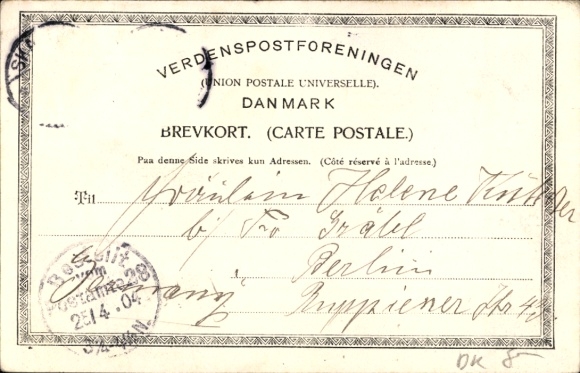 SKA
VERDENSPOSTFORENINGEN
(UNION POSTALE UNIVERSELLE).
DANMARK
BREVKORT. (CARTE POSTALE.)
Paa denne Side skrives kun Adressen. (Côté réservé à l'adresse.)
Til Fräulein Helene
b/ Fr Gräbl
Berlin
Germany, Ruppiener Str 43.
Bestellt
vom
Postamte 28
25/4.04
3¼-4¼N.
DK 8-